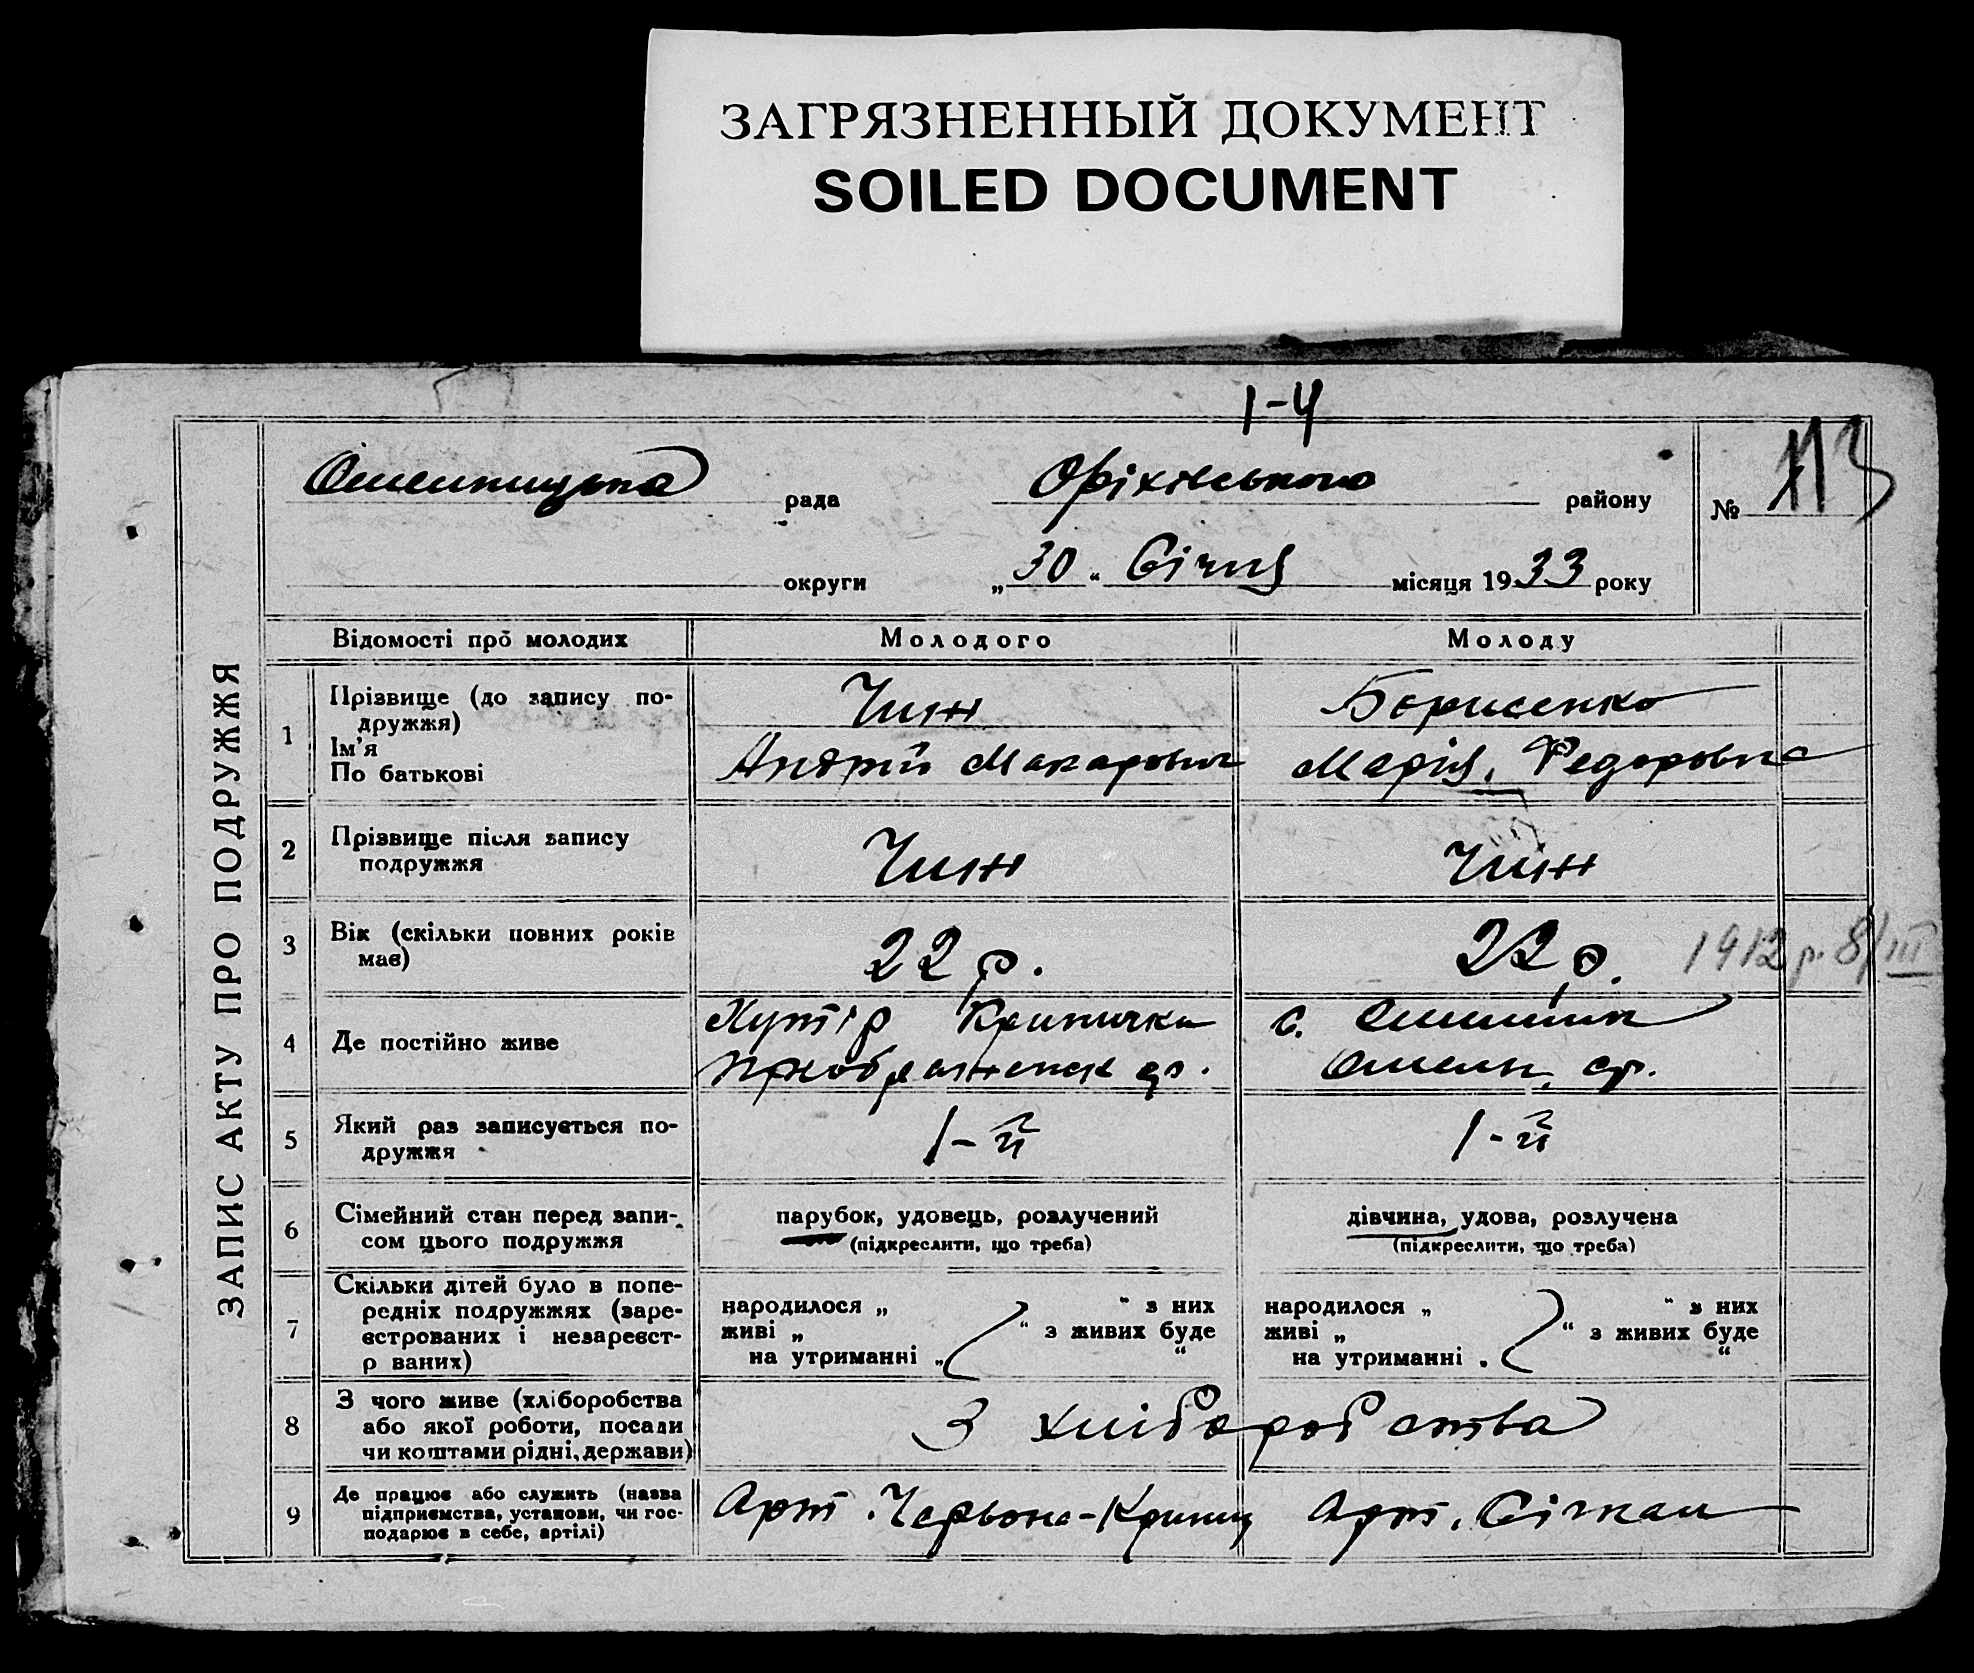 ЗАГРЯЗНЕННЫЙ ДОКУМЕНТ
SOILED DOCUMENT
1-4
рада Оріхівського району № 113
округи „30“ Січня місяця 1933 року
ЗАПИС АКТУ ПРО ПОДРУЖЖЯ
Відомості про молодих Молодого Молоду
1 Прізвище (до запису по-
дружжя)
Ім'я
По батькові
Чиж Борисенко
Андрій Макарович Марія, Федоровна
2 Прізвище після запису
подружжя
Чиж Чиж
3 Вік (скільки повних років
має)
22 р. 22 р. 1912 р. 8/III
4 Де постійно живе
Хутір Кринички с.
5 Який раз записується по-
дружжя
1-й 1-й
6 Сімейний стан перед запи-
сом цього подружжя
парубок, удовець, розлучений
(підкреслити, що треба)
дівчина, удова, розлучена
(підкреслити, що треба)
7 Скільки дітей було в попе-
редніх подружжях (заре-
єстрованих і незареєст-
р ваних)
народилося „ “ з них
живі „ “ з живих буде
на утриманні „ “
народилося „ “ з них
живі „ “ з живих буде
на утриманні „ “
8 З чого живе (хліборобства
або якої роботи, посади
чи коштами рідні, держави)
З хліборобства
9 Де працює або служить (назва
підприємства, установи, чи гос-
подарює в себе, артілі)
Арт. Червона-Криниц Арт. Січкан